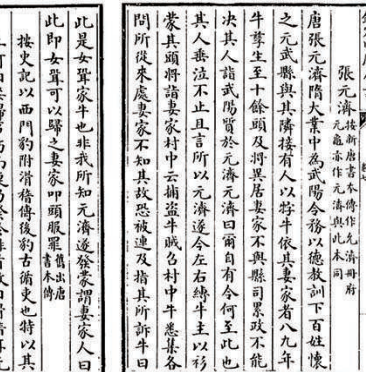 張元濟按新唐書本傳作允濟冊府
元龜亦作元濟與此本同
唐張元濟隋大業中為武陽令務以德教訓下百姓懷
之元武縣與其隣接有人以牸牛依其妻家者八九年
牛孳生至十餘頭及將異居妻家不與縣司累政不能
決其人詣武陽質於元濟元濟曰爾自有令何至此也
其人垂泣不止且言所以元濟遂令左右縛牛主以衫
蒙其頭將詣妻家村中云捕盜牛賊召村中牛悉集各
問所從來處妻家不知其故恐被連及指其所訴牛曰
此是女聟家牛也非我所知元濟遂發蒙謂妻家人曰
此即女聟可以歸之妻家叩頭服罪舊出唐
書本傳
按史記以西門豹附滑稽傳後豹古循吏也特以其